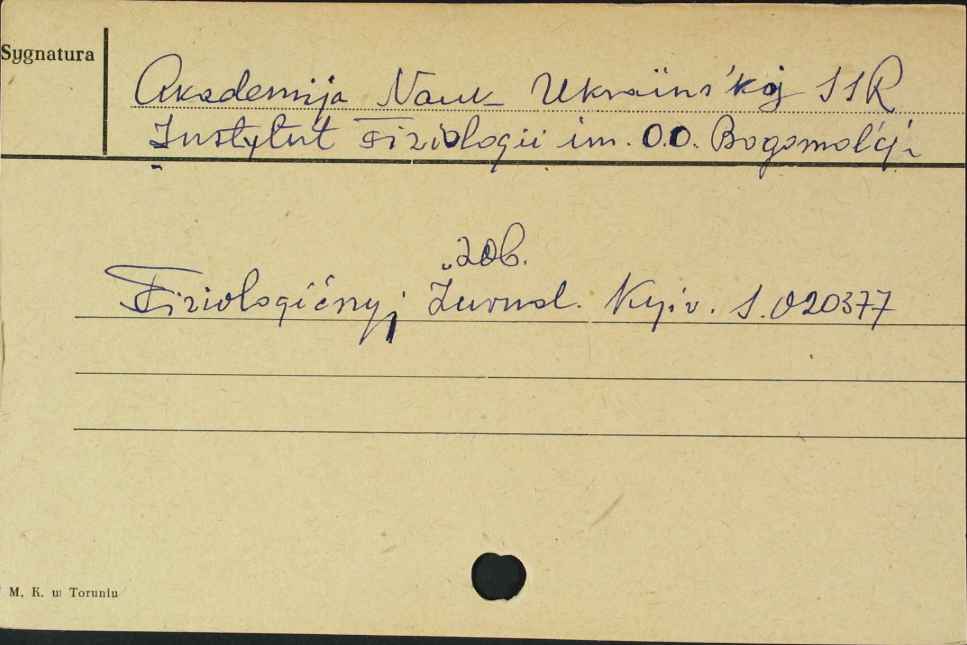 Sygnatura
Akademija Nauk Ukraïns'koj SSR
Instytut Fiziologii im. O.O. Bogomol'cja
zob.
Fiziologičnyj Žurnal. Kyiv. S.020377
M. K. w Toruniu